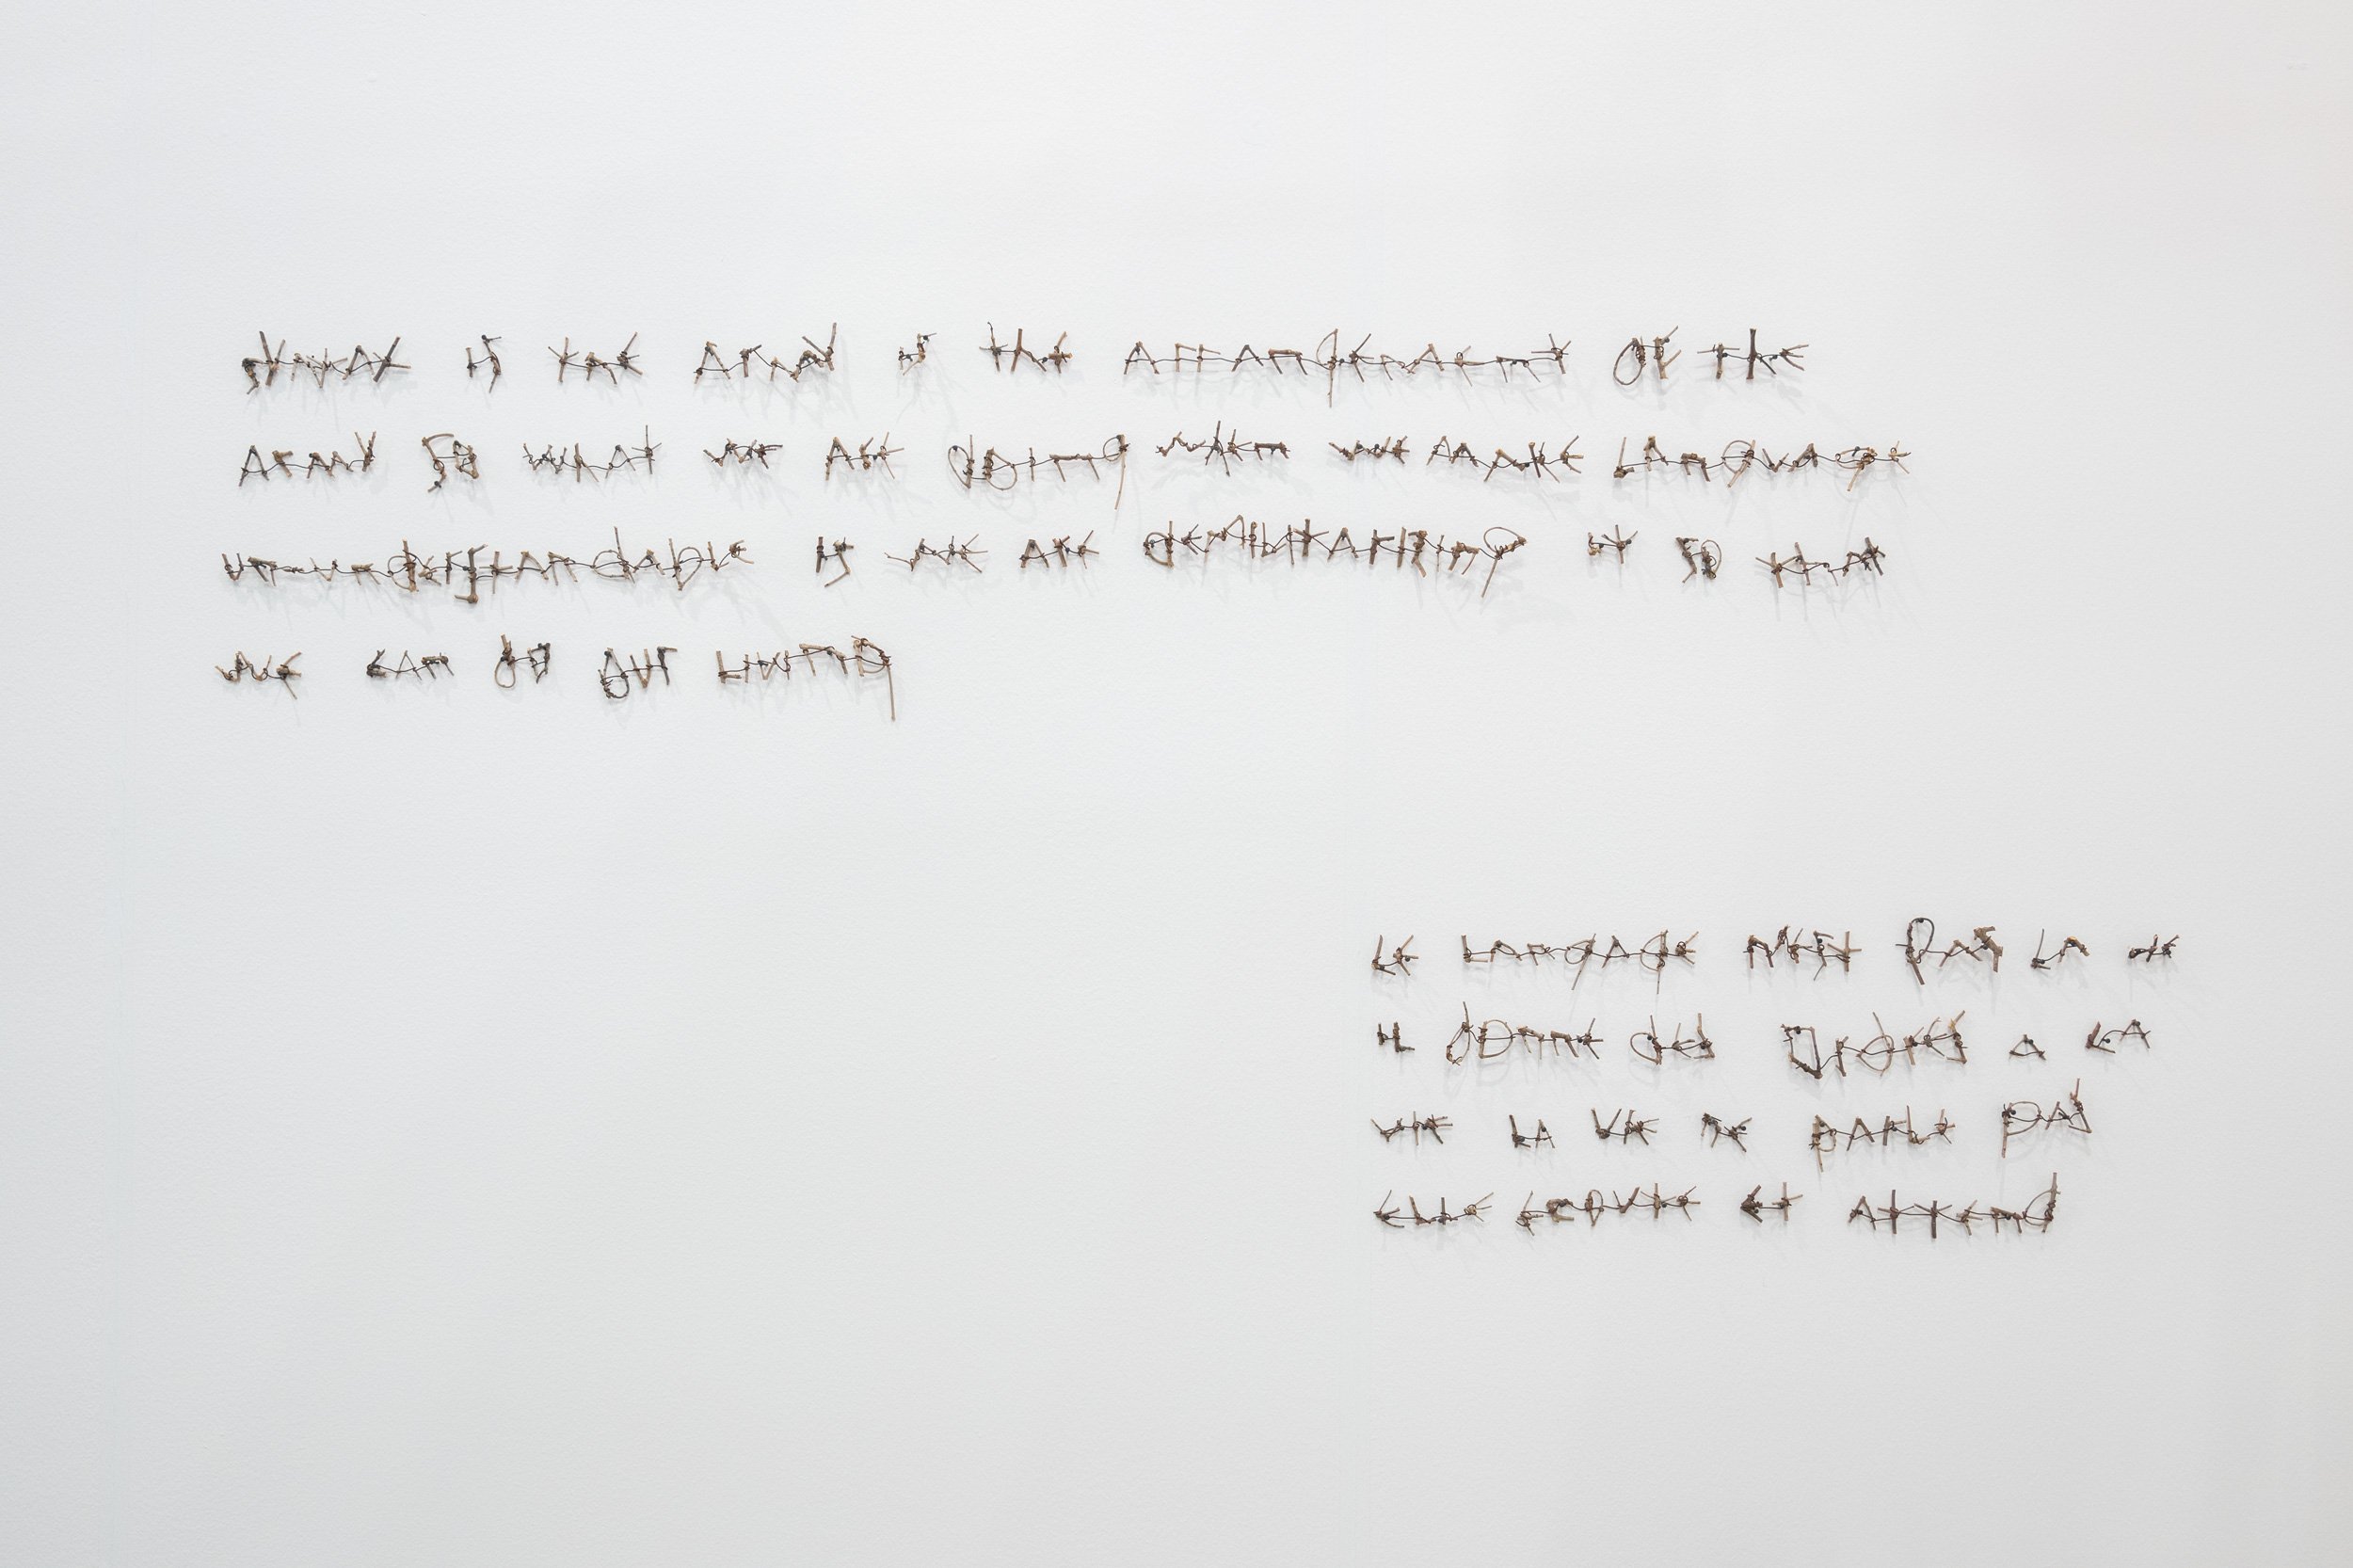 syntax is the army is the arrangement of the
army so what we are doing when we make language
ununderstandable is we are demilitarizing it so that
we can do our living
le langage n'est pas la vie
il donne des ordres a la
vie la vie ne parle pas
elle ecoute et attend